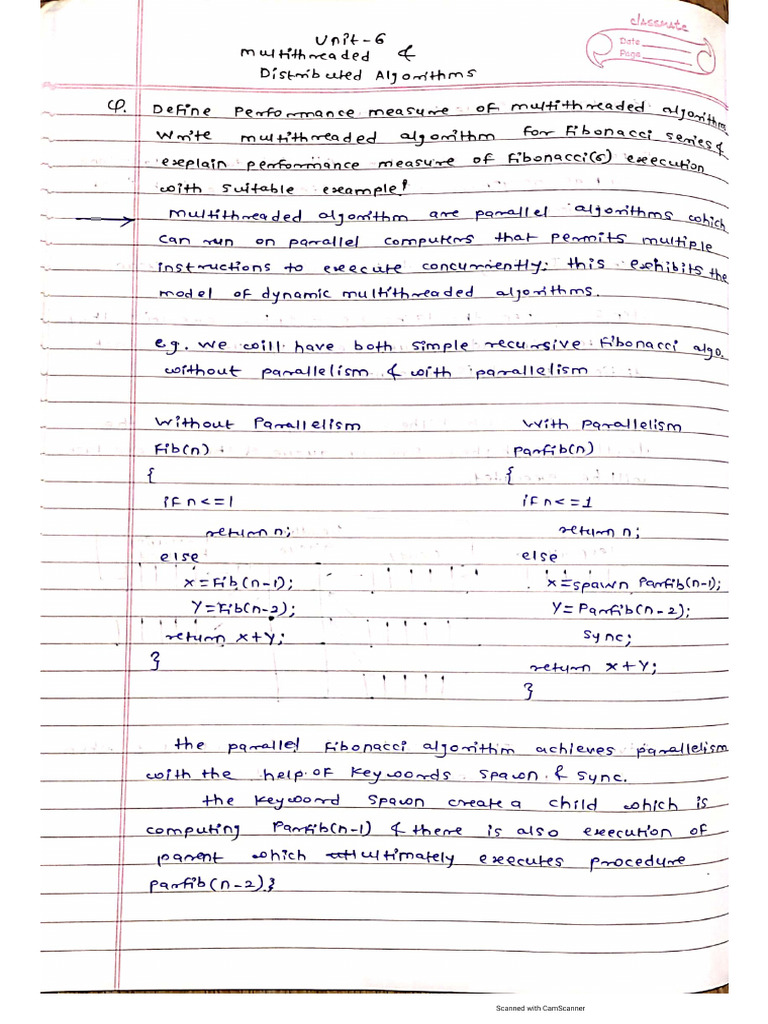 classmate
Date
Page
Unit-6
Multithreaded &
Distributed Algorithms
Q. Define performance measure of multithreaded algorithm.
Write multithreaded algorithm for Fibonacci series &
explain performance measure of Fibonacci(6) execution
with suitable example!
→ Multithreaded algorithm are parallel algorithms which
can run on parallel computers that permits multiple
instructions to execute concurrently; this exhibits the
model of dynamic multithreaded algorithms.
e.g. we will have both simple recursive fibonacci algo.
without parallelism & with parallelism
Without Parallelism
Fib(n)
{
if n<=1
return n;
else
x=Fib(n-1);
Y=Fib(n-2);
return x+Y;
}
With Parallelism
Parfib(n)
{
if n<=1
return n;
else
x=spawn Parfib(n-1);
Y=Parfib(n-2);
sync;
return x+Y;
}
the parallel fibonacci algorithm achieves parallelism
with the help of keywords spawn & sync.
the keyword spawn create a child which is
computing Parfib(n-1) & there is also execution of
parent which ultimately executes procedure
Parfib(n-2)}
Scanned with CamScanner